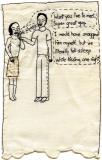 What you'd've loved,
super great guy.
I would have snogged
him myself, but we
literally fell asleep
while kissing one night